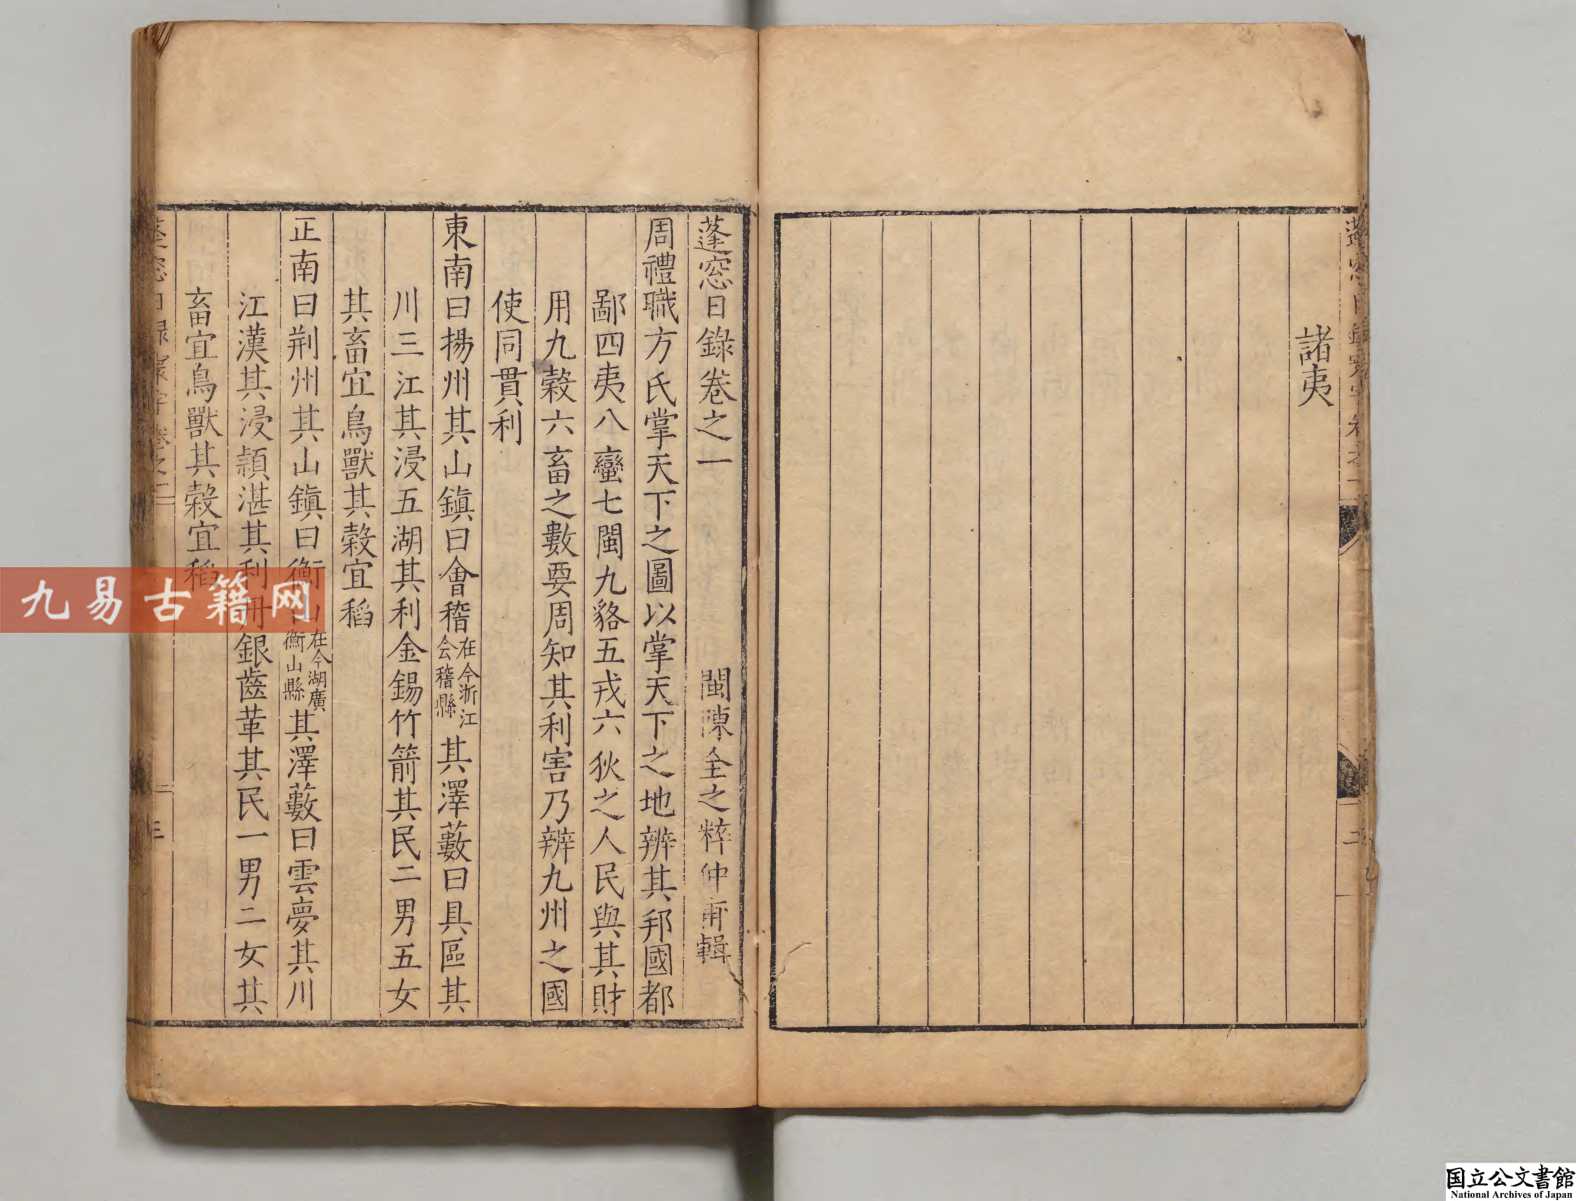 諸夷
蓬窓日錄卷之一
閩陳全之粹仲甫輯
周禮職方氏掌天下之圖以掌天下之地辨其邦國都
鄙四夷八蠻七閩九貉五戎六狄之人民與其財
用九穀六畜之數要周知其利害乃辨九州之國
使同貫利
東南曰揚州其山鎮曰會稽在今浙江会稽縣其澤藪曰具區其
川三江其浸五湖其利金錫竹箭其民二男五女
其畜宜鳥獸其穀宜稻
正南曰荆州其山鎮曰衡山在今湖廣衡山縣其澤藪曰雲夢其川
江漢其浸頴湛其利丹銀齒革其民一男二女其
畜宜鳥獸其穀宜稻
三
九易古籍网
国立公文書館
National Archives of Japan